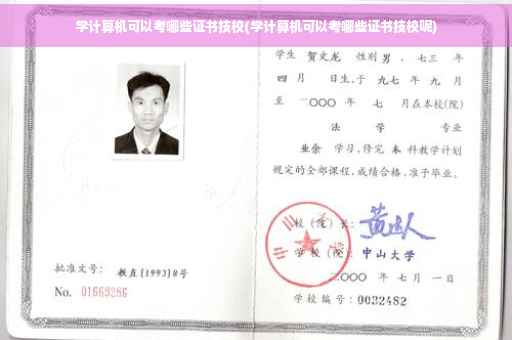 学计算机可以考哪些证书技校(学计算机可以考哪些证书技校呢)
学生 贺文龙 性别 男 、七三 年
四 月 日生,于 九七 年 九 月
至 二〇〇〇 年 七 月在本校(院)
法 学 专业
业余 学习,修完 本 科教学计划
规定的全部课程,成绩合格,准予毕业。
校 (院) 长:
学 校 (院): 中山大学
二〇〇〇 年 七 月 一 日
学校编号: 0032482
批准文号: 教直(1993)8号
No. 01669286